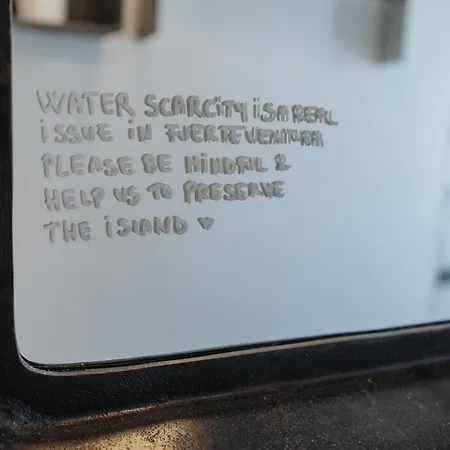 WATER SCARCITY IS A REAL
ISSUE IN FUERTEVENTURA
PLEASE BE MINDFUL &
HELP US TO PRESERVE
THE ISLAND ♥